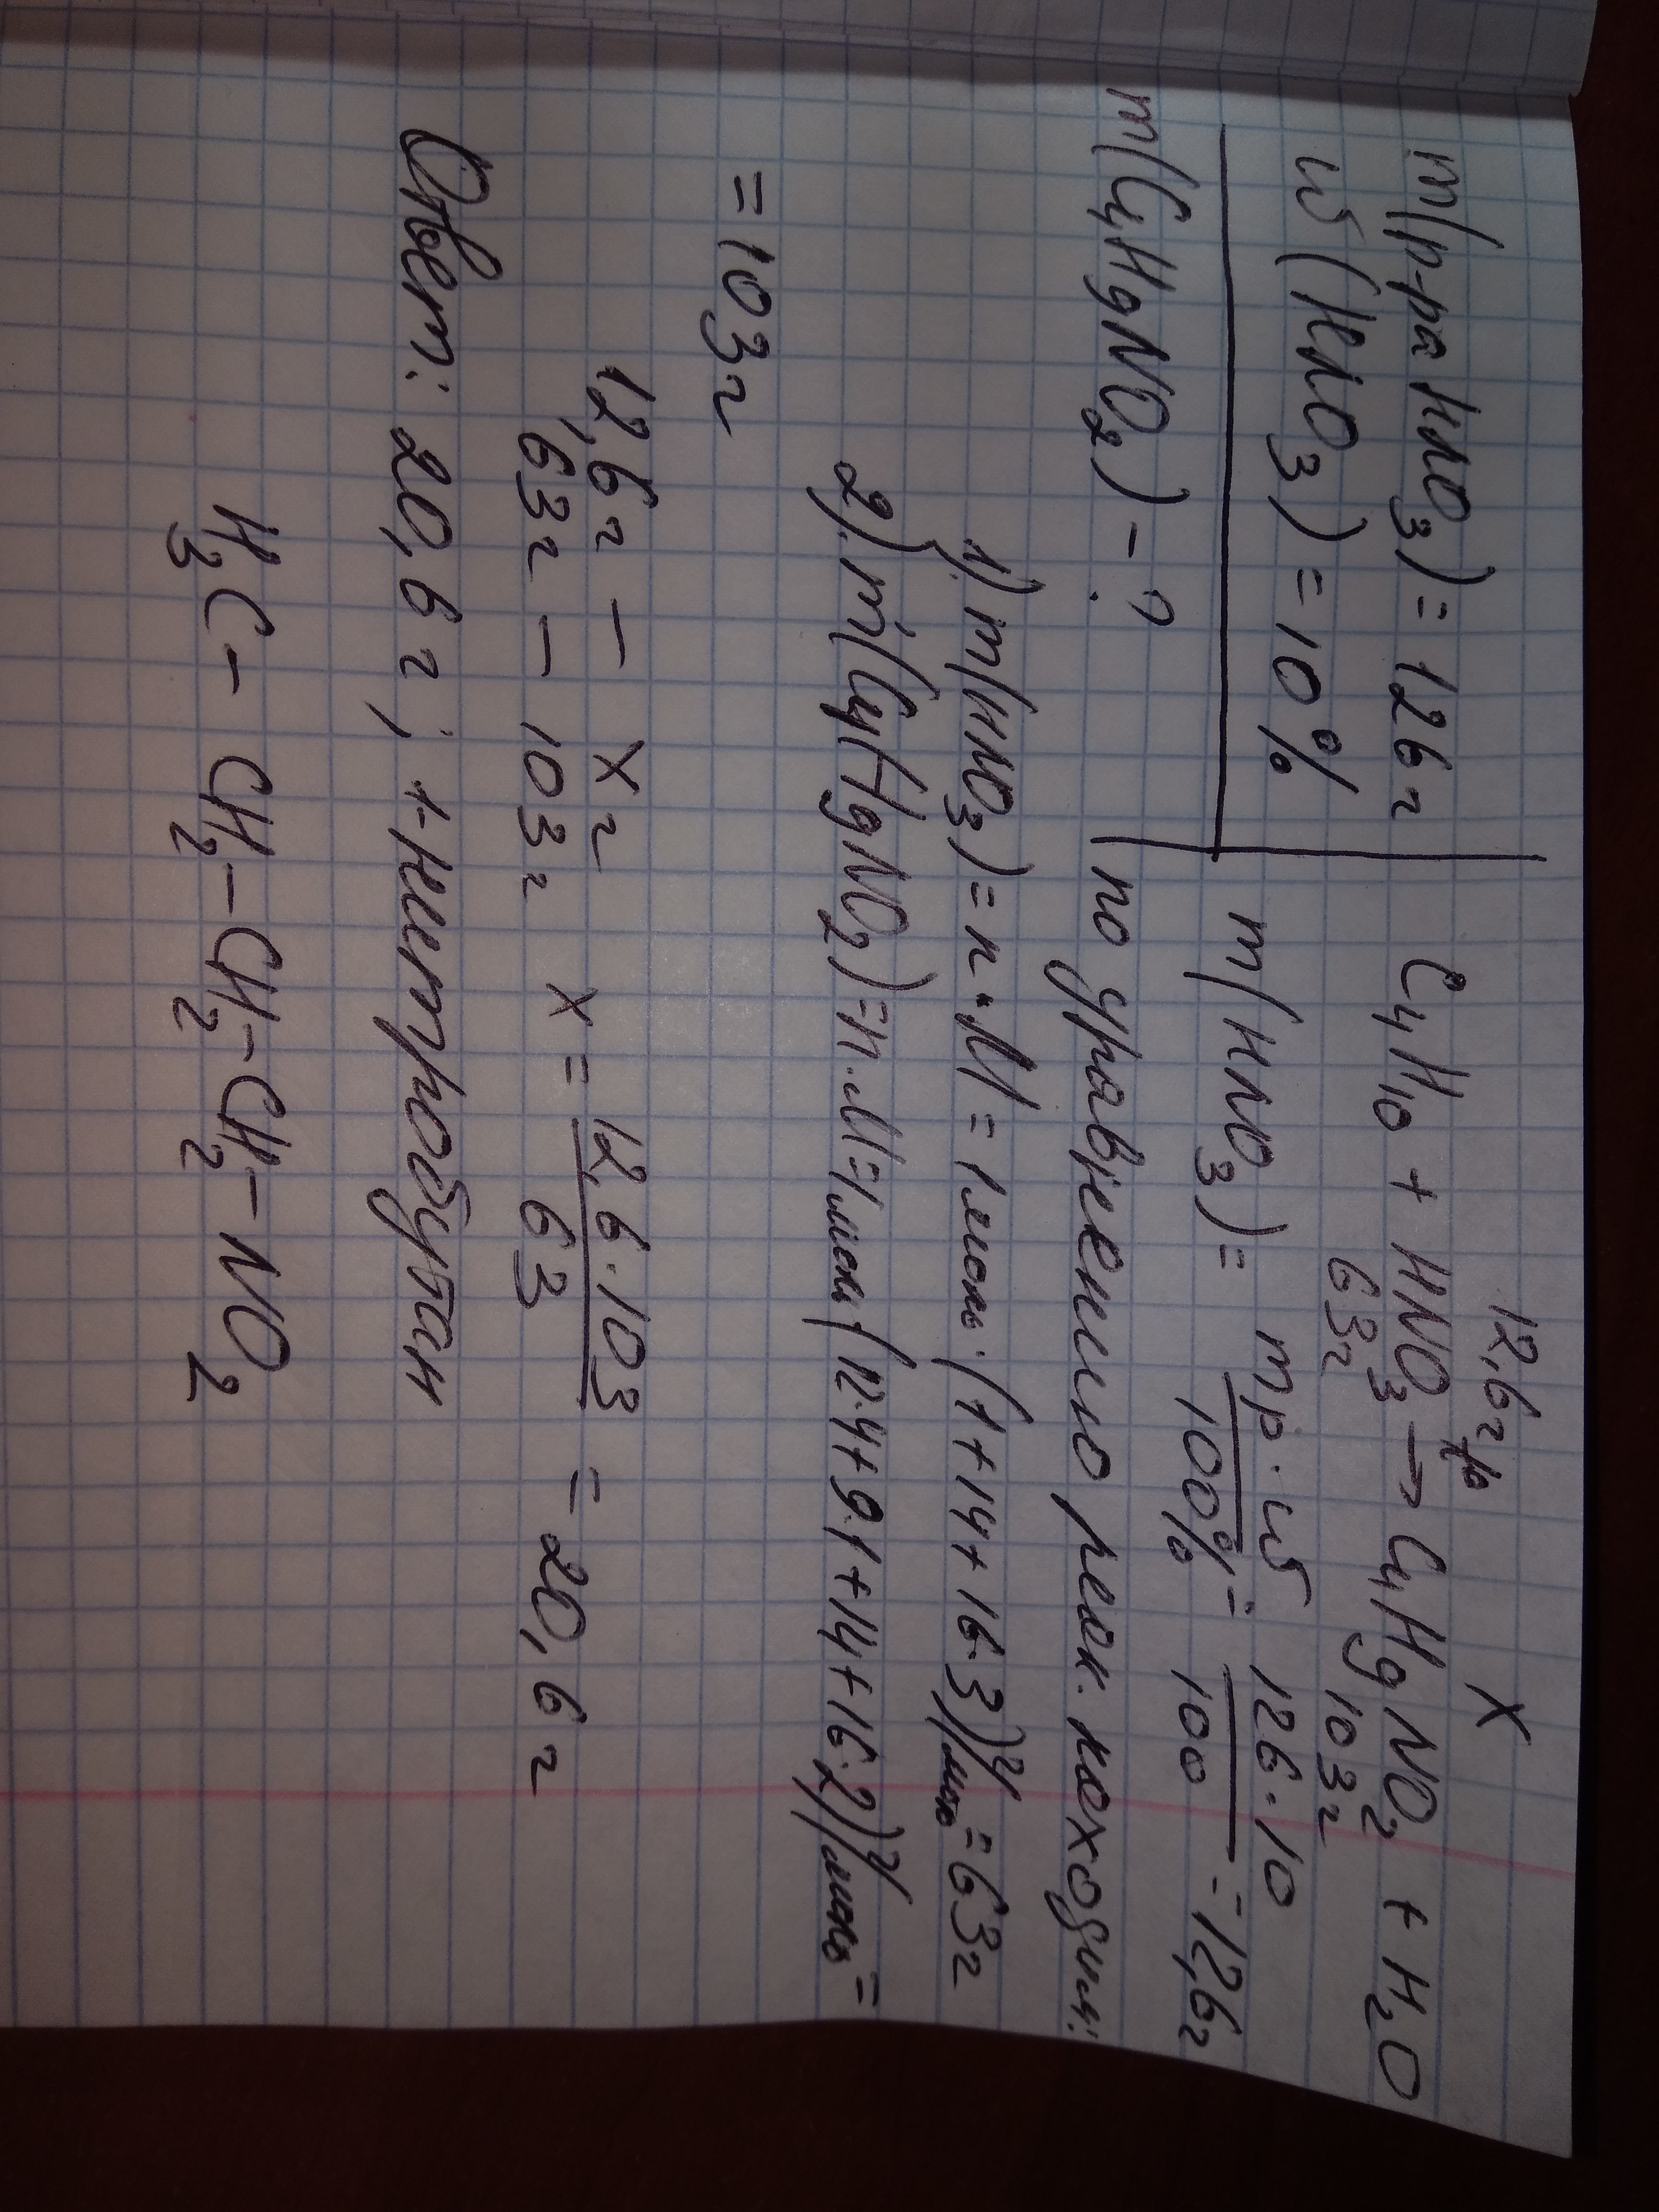 12,6г X
m(р-ра HNO₃) = 126 г C₄H₁₀ + HNO₃ → C₄H₉NO₂ + H₂O
63г 103г
w(HNO₃) = 10%
m(HNO₃) = mр·w/100% = 126·10/100 = 12,6г
m(C₄H₉NO₂) - ? по уравнению реак. находим:
1) m(HNO₃) = n·M = 1моль·(1+14+16·3)г/моль = 63г
2) m(C₄H₉NO₂) = n·M = 1моль(12·4+9·1+14+16·2)г/моль =
= 103г
12,6г – x г
63г – 103г x = 12,6·103/63 = 20,6г
Ответ: 20,6г; 1-нитробутан
H₃C - CH₂ - CH₂ - CH₂ - NO₂